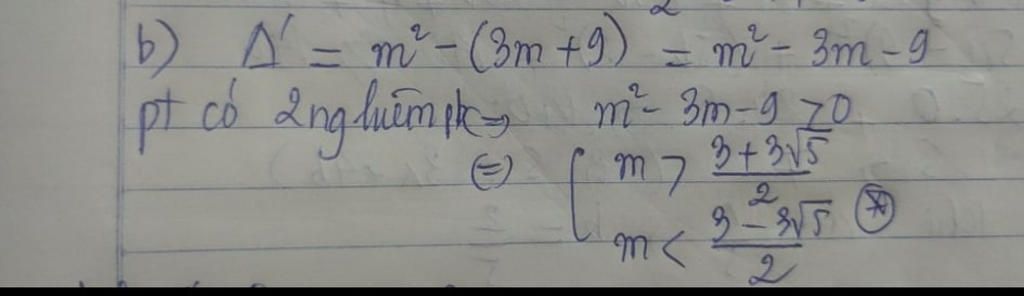 b) Δ' = m² - (3m + 9) = m² - 3m - 9
pt có 2 nghiệm pk => m² - 3m - 9 > 0
<=> [ m > (3 + 3√5)/2
m < (3 - 3√5)/2 (*)